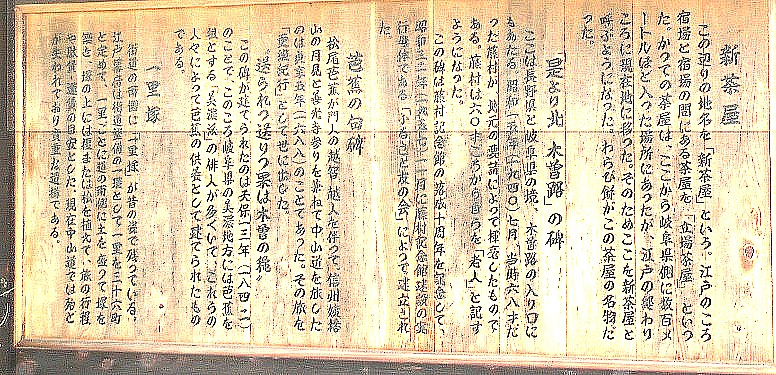 新茶屋
この辺りの地名を「新茶屋」という。江戸のころ
宿場と宿場の間にある茶屋を、「立場茶屋」といっ
た。かつての茶屋は、ここから岐阜県側に数百メ
ートルほど入った場所にあったが、江戸の終わり
ころに現在地に移った。そのためここを新茶屋と
呼ぶようになった。わらび餅がこの茶屋の名物だ
った。
「是より北 木曽路」の碑
ここは長野県と岐阜県の境、木曽路の入り口に
もあたる。昭和一五年（一九四〇）七月、当時六八才だ
った藤村が、地元の要請によって揮毫したもので
ある。藤村は六〇才ころから自らを「老人」と記す
ようになった。
この碑は藤村記念館の落成十周年を記念して、
昭和三二年（一九五七）一一月に藤村記念館建設の実
行母体である「ふるさと友の会」によって建立され
た。
芭蕉の句碑
松尾芭蕉が門人の越智越人を伴って、信州姨捨
山の月見と善光寺参りを兼ねて中山道を旅した
のは貞享五年（一六八八）のことであった。その旅を
「更級紀行」として世に出した。
“送られつ送りつ果は木曽の穐”
この碑が建てられたのは天保一三年（一八四二）
のことで、このころ岐阜県の美濃地方には芭蕉を
祖とする「美濃派」の俳人が多くいて、これらの
人々によって芭蕉の供養として建てられたもの
である。
一里塚
街道の両側に「一里塚」が昔の姿で残っている。
江戸幕府は街道整備の一環として、一里を三十六町
と定めて、一里ごとに道の両側に土を盛って塚を
築き、塚の上には榎または松を植えて、旅の行程
や駄賃、運賃の目安とした。現在中山道では殆ど
が失われており貴重な遺構である。